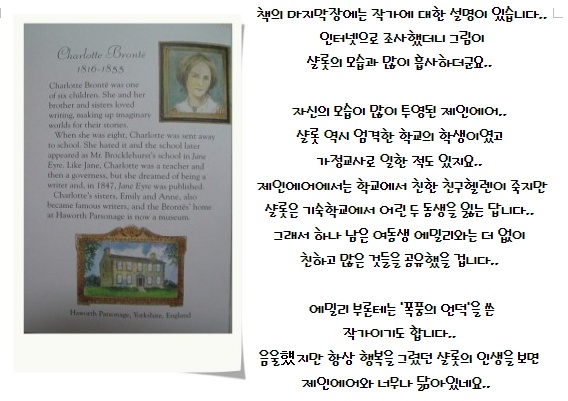 Charlotte Brontë
1816-1855
Charlotte Brontë was one
of six children. She and her
brother and sisters loved
writing, making up imaginary
worlds for their stories.
When she was eight, Charlotte was sent away
to school. She hated it and the school later
appeared as Mr. Brocklehurst's school in Jane
Eyre. Like Jane, Charlotte was a teacher and
then a governess, but she dreamed of being a
writer and, in 1847, Jane Eyre was published.
Charlotte's sisters, Emily and Anne, also
became famous writers, and the Brontës' home
at Haworth Parsonage is now a museum.
Haworth Parsonage, Yorkshire, England
책의 마지막장에는 작가에 대한 설명이 있습니다..
인터넷으로 조사했더니 그림이
샬롯의 모습과 많이 흡사하더군요..
자신의 모습이 많이 투영된 제인에어..
샬롯 역시 엄격한 학교의 학생이였고
가정교사로 일한 적도 있지요..
제인에어에서는 학교에서 친한 친구헬렌이 죽지만
샬롯은 기숙학교에서 어린 두 동생을 잃는 답니다..
그래서 하나 남은 여동생 에밀리와는 더 없이
친하고 많은 것들을 공유했을 겁니다..
에밀리 부론테는 '폭풍의 언덕'을 쓴
작가이기도 합니다..
음울했지만 항상 행복을 그렸던 샬롯의 인생을 보면
제인에어와 너무나 닮아있네요..